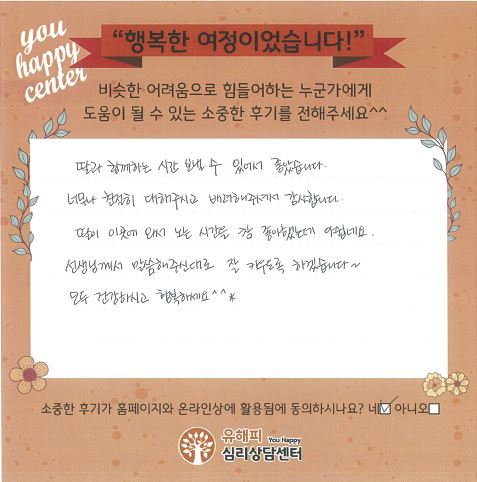 you
happy
center
“행복한 여정이었습니다!”
비슷한 어려움으로 힘들어하는 누군가에게
도움이 될 수 있는 소중한 후기를 전해주세요^^
딸과 함께하는 시간 보낼 수 있어서 좋았습니다.
너무나 친절히 대해주시고 배려해주셔서 감사합니다.
딸이 이곳에 와서 노는 시간을 참 좋아했는데 아쉽네요.
선생님께서 말씀해주신대로 잘 키우도록 하겠습니다~
모두 건강하시고 행복하세요^^*
소중한 후기가 홈페이지와 온라인상에 활용됨에 동의하시나요? 네☑ 아니오☐
유해피 You Happy
심리상담센터